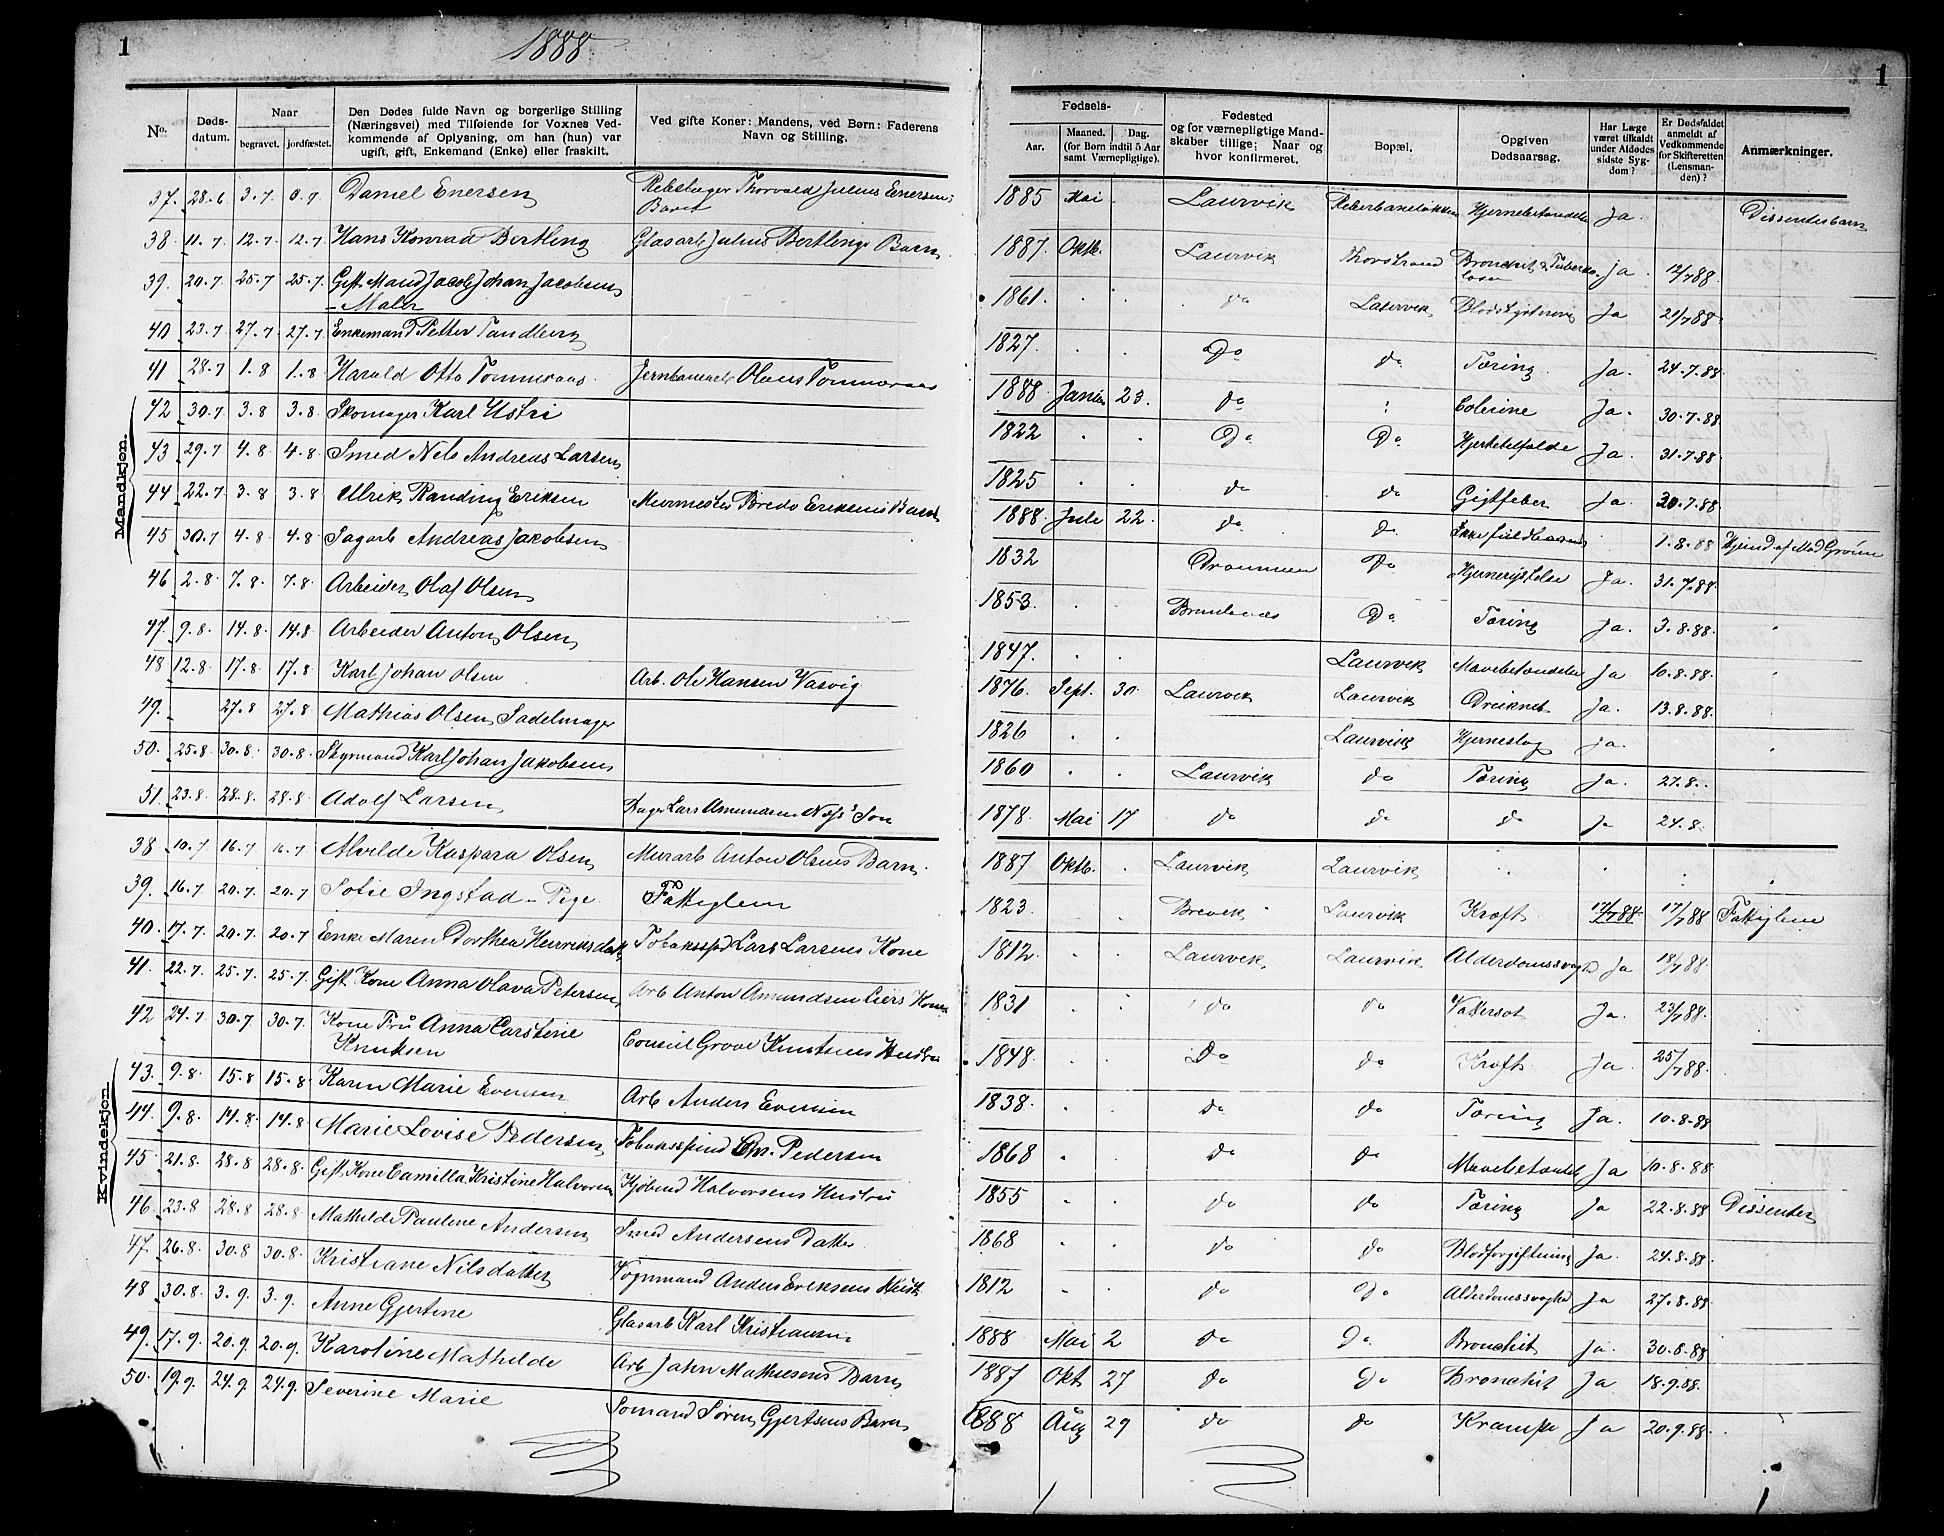 1
1888
1
No.
Døds-
datum.
Naar
begravet.
jordfæstet.
Den Dødes fulde Navn og borgerlige Stilling
(Næringsvei) med Tilføiende for Voxnes Ved-
kommende af Oplysning, om han (hun) var
ugift, gift, Enkemand (Enke) eller fraskilt.
Ved gifte Koner: Mandens, ved Børn: Faderens
Navn og Stilling.
Fødsels-
Aar.
Maaned.
Dag.
(for Børn indtil 5 Aar
samt Værnepligtige).
Fødested
og for værnepligtige Mand-
skaber tillige; Naar og
hvor konfirmeret.
Bopæl.
Opgiven
Dødsaarsag.
Har Læge
været tilkaldt
under Afdødes
sidste Syg-
dom?
Er Dødsfaldet
anmeldt af
Vedkommende
for Skifteretten
(Lensman-
den)?
Anmærkninger.
Mandkjøn.
37. 28.6 3.7 Daniel Enersen Thorvald Julius Enersens Barn 1885 Mai Laurvik Hjernebetændelse Ja. Dissenterbarn
38 11.7 12.7 12.7 Hans Konrad Bertling Glasarb Julius Bertlings Barn 1887. Oktb. Laurvik Thorstrand Bronchit & Tuberku-
lose Ja 12/7 88
39. 20.7 25.7 25.7 Gift Mand Jacob Johan Jacobsen
- Maler 1861. do Laurvik Ja 21/7 88
40 23.7 27.7 27.7 Enkemand Petter Tandberg 1827 Do do Tæring Ja. 24.7.88
41 28.7 1.8 1.8 Harald Otto Tømmeraas Jernbanearb Olaus Tømmeraas 1888 23. do Colerine Ja. 30.7.88
42 30.7 3.8 3.8 Skomager Karl Ustri 1822 Do Do Ja. 31.7.88
43 29.7 4.8 4.8 Smed Nils Andreas Larsen 1825 do do Gigtfeber Ja. 30.7.88
44 22.7 3.8 3.8 Ulrik Randing Eriksen Murmester Eriksens Barn 1888 Juli 22. do do Ikke fuldbaaren 1.8.88
45 30.7 4.8 4.8 Sagarb Andreas Jakobsen 1832 Drammen Do Hjernerystelse Ja. 31.7.88
46 2.8 7.8 7.8 Arbeider Olaf Olsen 1853. Brunlanæs Do Tæring Ja. 3.8.88
47. 9.8. 14.8 14.8 Arbeider Anton Olsen 1847. Laurvik Mavebetændelse Ja 10.8.88
48 12.8 17.8 17.8 Karl Johan Olsen Arb. Ole Hansen Vasvig 1876 Sept. 30 Laurvik Laurvik Druknet Ja. 13.8.88.
49. 27.8 27.8 Mathias Olsen Sadelmager 1826 Laurvik Hjerneslag Ja.
50. 25.8 30.8 30.8 Styrmand Karl Johan Jakobsen 1860 Laurvik do Tæring Ja. 27.8.
51. 23.8 28.8 28.8 Adolf Larsen Lars Amundsen Søn 1878 Mai 17 do do do Ja 24.8.
Kvindekjøn
38 10.7 16.7 16.7 Alvilde Kaspara Olsen Murarb Anton Olsens Barn. 1887 Oktb. Laurvik Laurvik
39. 16.7 20.7. 20.7 Sofie Ingstad - Pige Fattiglem 1823 Brevik Laurvik Kræft 17/7 88. 17/7 88 Fattiglem
40. 17.7 20.7. 20.7 Enke Maren Dorthea Henriksdatt. Tobaksspd Lars Larsens Kone 1812. Laurvik. Laurvik. Alderdomssvagh Ja 18/7 88
41. 22.7. 25.7. 25.7 Gift Kone Anna Olava Petersen Arb Anton Amundsen Kone 1831 do do Vattersot Ja. 23/7 88.
42 24.7 30.7 30.7. Kone Fru Anna Carstine
Knutsen Consul Grove Knutsens Hustru 1848 Do do Kræft Ja. 25/7 88.
43. 9.8 15.8 15.8 Karen Marie Evensen Arb Anders Evensen 1838. do do Tæring Ja. 10.8.88
44. 9.8. 14.8. 14.8 Marie Lovise Pedersen Tobaksspind Chr. Pedersen 1868 do do Mavebetændel Ja 10.8.88
45 21.8. 28.8 28.8 Gift. Kone Camilla Kristine Halvorsen Kjøbmd Halvorsens Hustru 1855 do do Tæring Ja 22.8.88 Dissenter
46 23.8 28.8 28.8 Mathilde Pauline Andersen Smed Andersens Datter 1868 do do Blodforgiftning Ja. 24.8.88
47. 26.8. 30.8 30.8. Kristiane Nilsdatter Vognmand Anders Eriksens Hust 1812 do Do Alderdomssvaghd Ja 27.8.88
48 30.8. 3.9. 3.9. Anne Gjertine Glasarb Karl Kristiansen 1888 Mai 2 do Do. Bronchit Ja. 30.8.88
49. 17.9. 20.9. 20.9. Karoline Mathilde Arb John Mathiesens Barn 1887 Okt 27 do Do Bronchit Ja 18.9.88.
50. 19.9. 24.9 24.9. Severine Marie Sømand Søren Gjertsens Barn 1888 Aug 29 do do Krampe Ja 20.9.88.